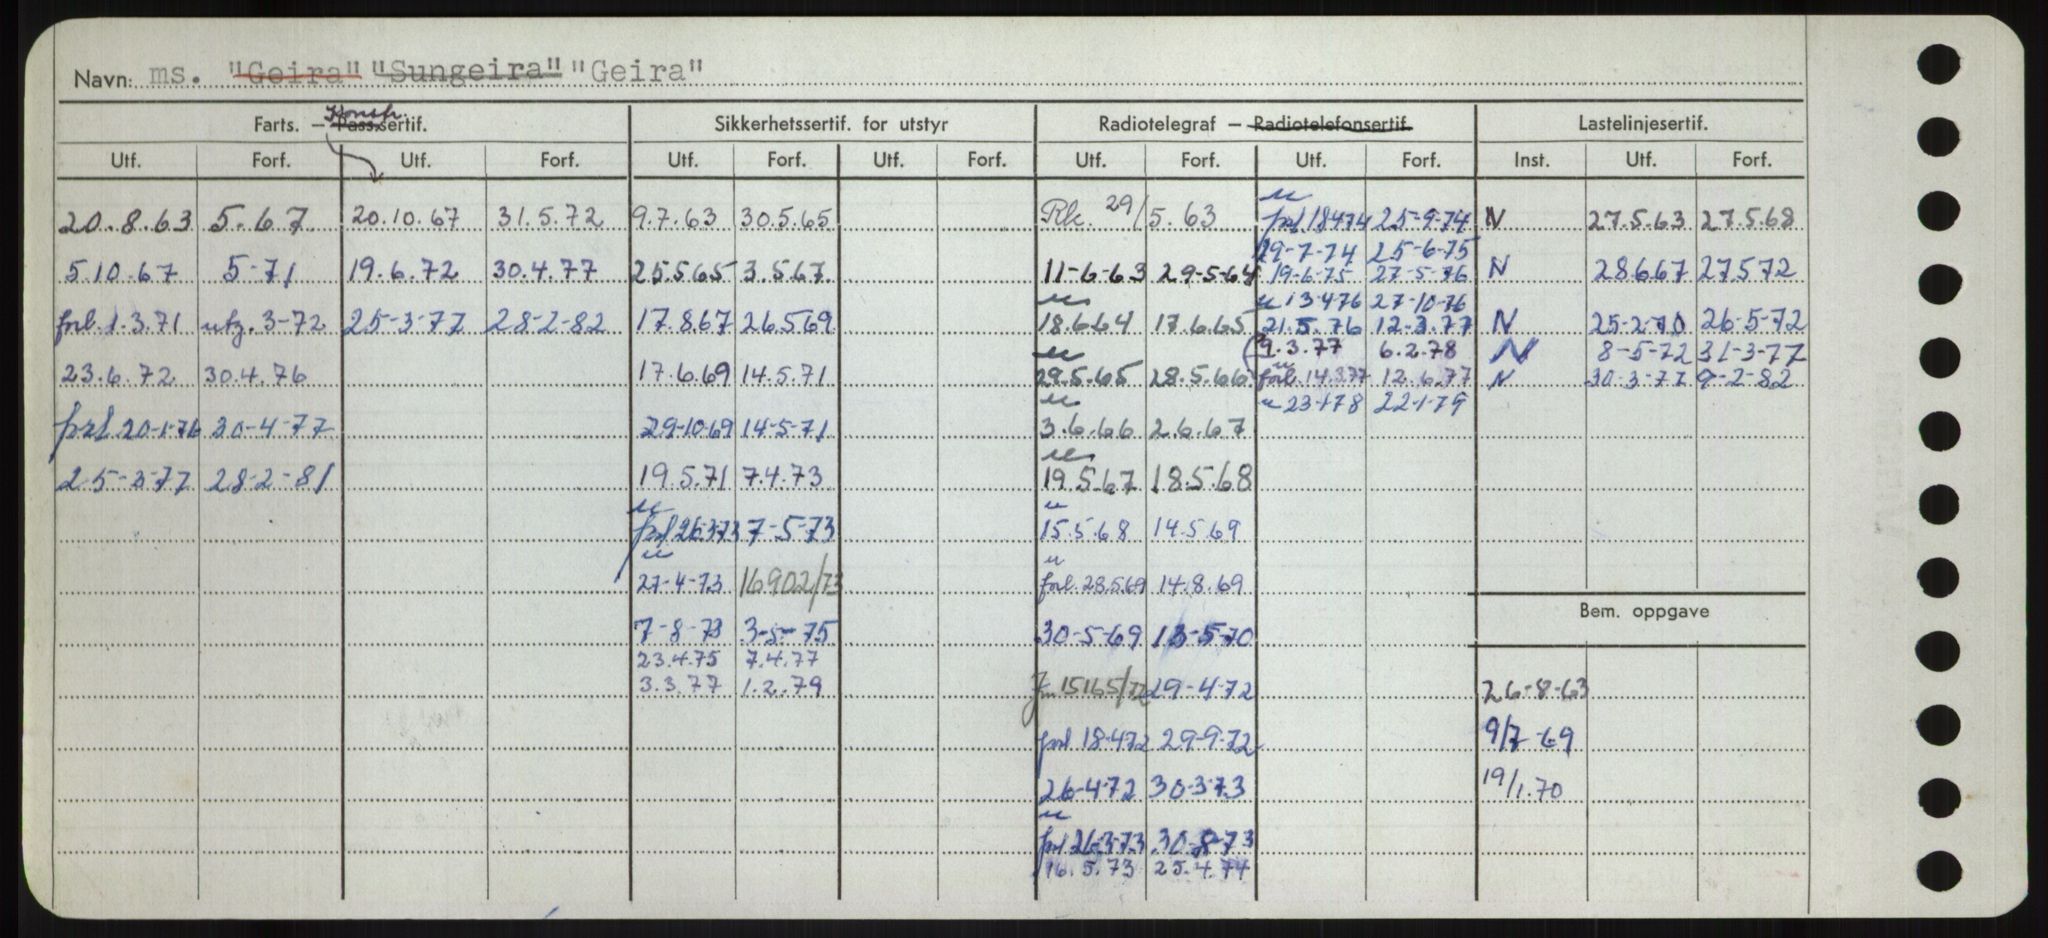 Navn: ms. "Geira" "Sungeira" "Geira"
Konstr.
Farts. — Pass.sertif. Sikkerhetssertif. for utstyr Radiotelegraf — Radiotelefonsertif. Lastelinjesertif.
Utf. Forf. Utf. Forf. Utf. Forf. Utf. Forf. Utf. Forf. Utf. Forf. Inst. Utf. Forf.
20.8.63 5.67 20.10.67 31.5.72 9.7.63 30.5.65 Rk. 29/5.63 u frl 18474 25-9-74 N 27.5.63 27.5.68
29-7-74 25-6-75
5.10.67 5-71 19.6.72 30.4.77 25.5.65 3.5.67 11-6-63 29-5-64 19-6-75 27-5-76 N 28667 27572
u 13476 27-10-76
forl. 1.3.71 utg. 3-72 25-3-77 28-2-82 17.8.67 26.5.69 u 18.6.64 17.6.65 21.5.76 12-3.77 N 25-2-70 26-5-72
9.3.77 6.2.78 N 8-5-72 31-3-77
23.6.72 30.4.76 17.6.69 14.5.71 u 29.5.65 28.5.66 u forl. 14.3.77 12.6.77 N 30-3-77 9-2-82
u 23-1-78 22-1-79
frl 20-1-76 30-4-77 29-10-69 14-5-71 u 3.6.66 2.6.67
25-3-77 28-2-81 19.5.71 7.4.73 u 19.5.67 18.5.68
u frl 26-3-73 7-5-73 u 15.5.68 14.5.69
u 27-4-73 16902/73 u forl. 28.5.69 14.8.69
Bem. oppgave
7-8-73 3-5-75 30-5-69 13-5-70
23.4.75 7.4.77
3.3.77 1.2.79 15165/72 29-4-72 26-8-63
frl 18-4-72 29-9-72 9/7-69
26-4-72 30-3-73 19/1.70
u frl 26-3-73 30-8-73
16.5.73 25.4.74